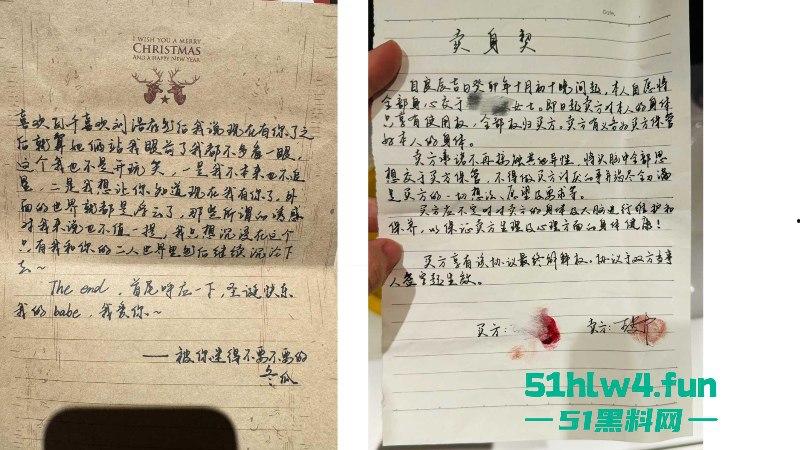 I WISH YOU A MERRY
CHRISTMAS
AND A HAPPY NEW YEAR
喜欢
我说现在有你了之
后就算她俩站我眼前了我都不多看一眼，
这个我也不是开玩笑，一是我本来也不追
星，二是我想让你知道现在我有你了，外
面的世界就都是浮云了，那些所谓的诱惑
对我来说也不值一提，我只想沉浸在这个
只有我和你的二人世界里然后继续沉沦下
去~
The end，首尾呼应一下，圣诞快乐
我的babe，我爱你~
——被你迷得不要不要的
冬瓜
Date.
卖身契
自良辰吉日癸卯年十月初十晚间起，本人自愿将
全部身心卖于 女士。即日起卖方对本人的身体
只享有使用权，全部权归买方。卖方有义务为买方保管
好本人的身体。
卖方承诺不再接触其他异性，将头脑中全部思
想交于买方保管，不得做买方讨厌的事并竭尽全力满
足买方的一切想法、愿望及要求等。
买方应不定时对卖方的身体及大脑进行维护和
保养，以保证卖方生理及心理方面的身体健康！
买方享有该协议最终解释权。协议于双方当事
人签字起生效。
买方： 卖方：
51hlw4.fun
—51黑料网—